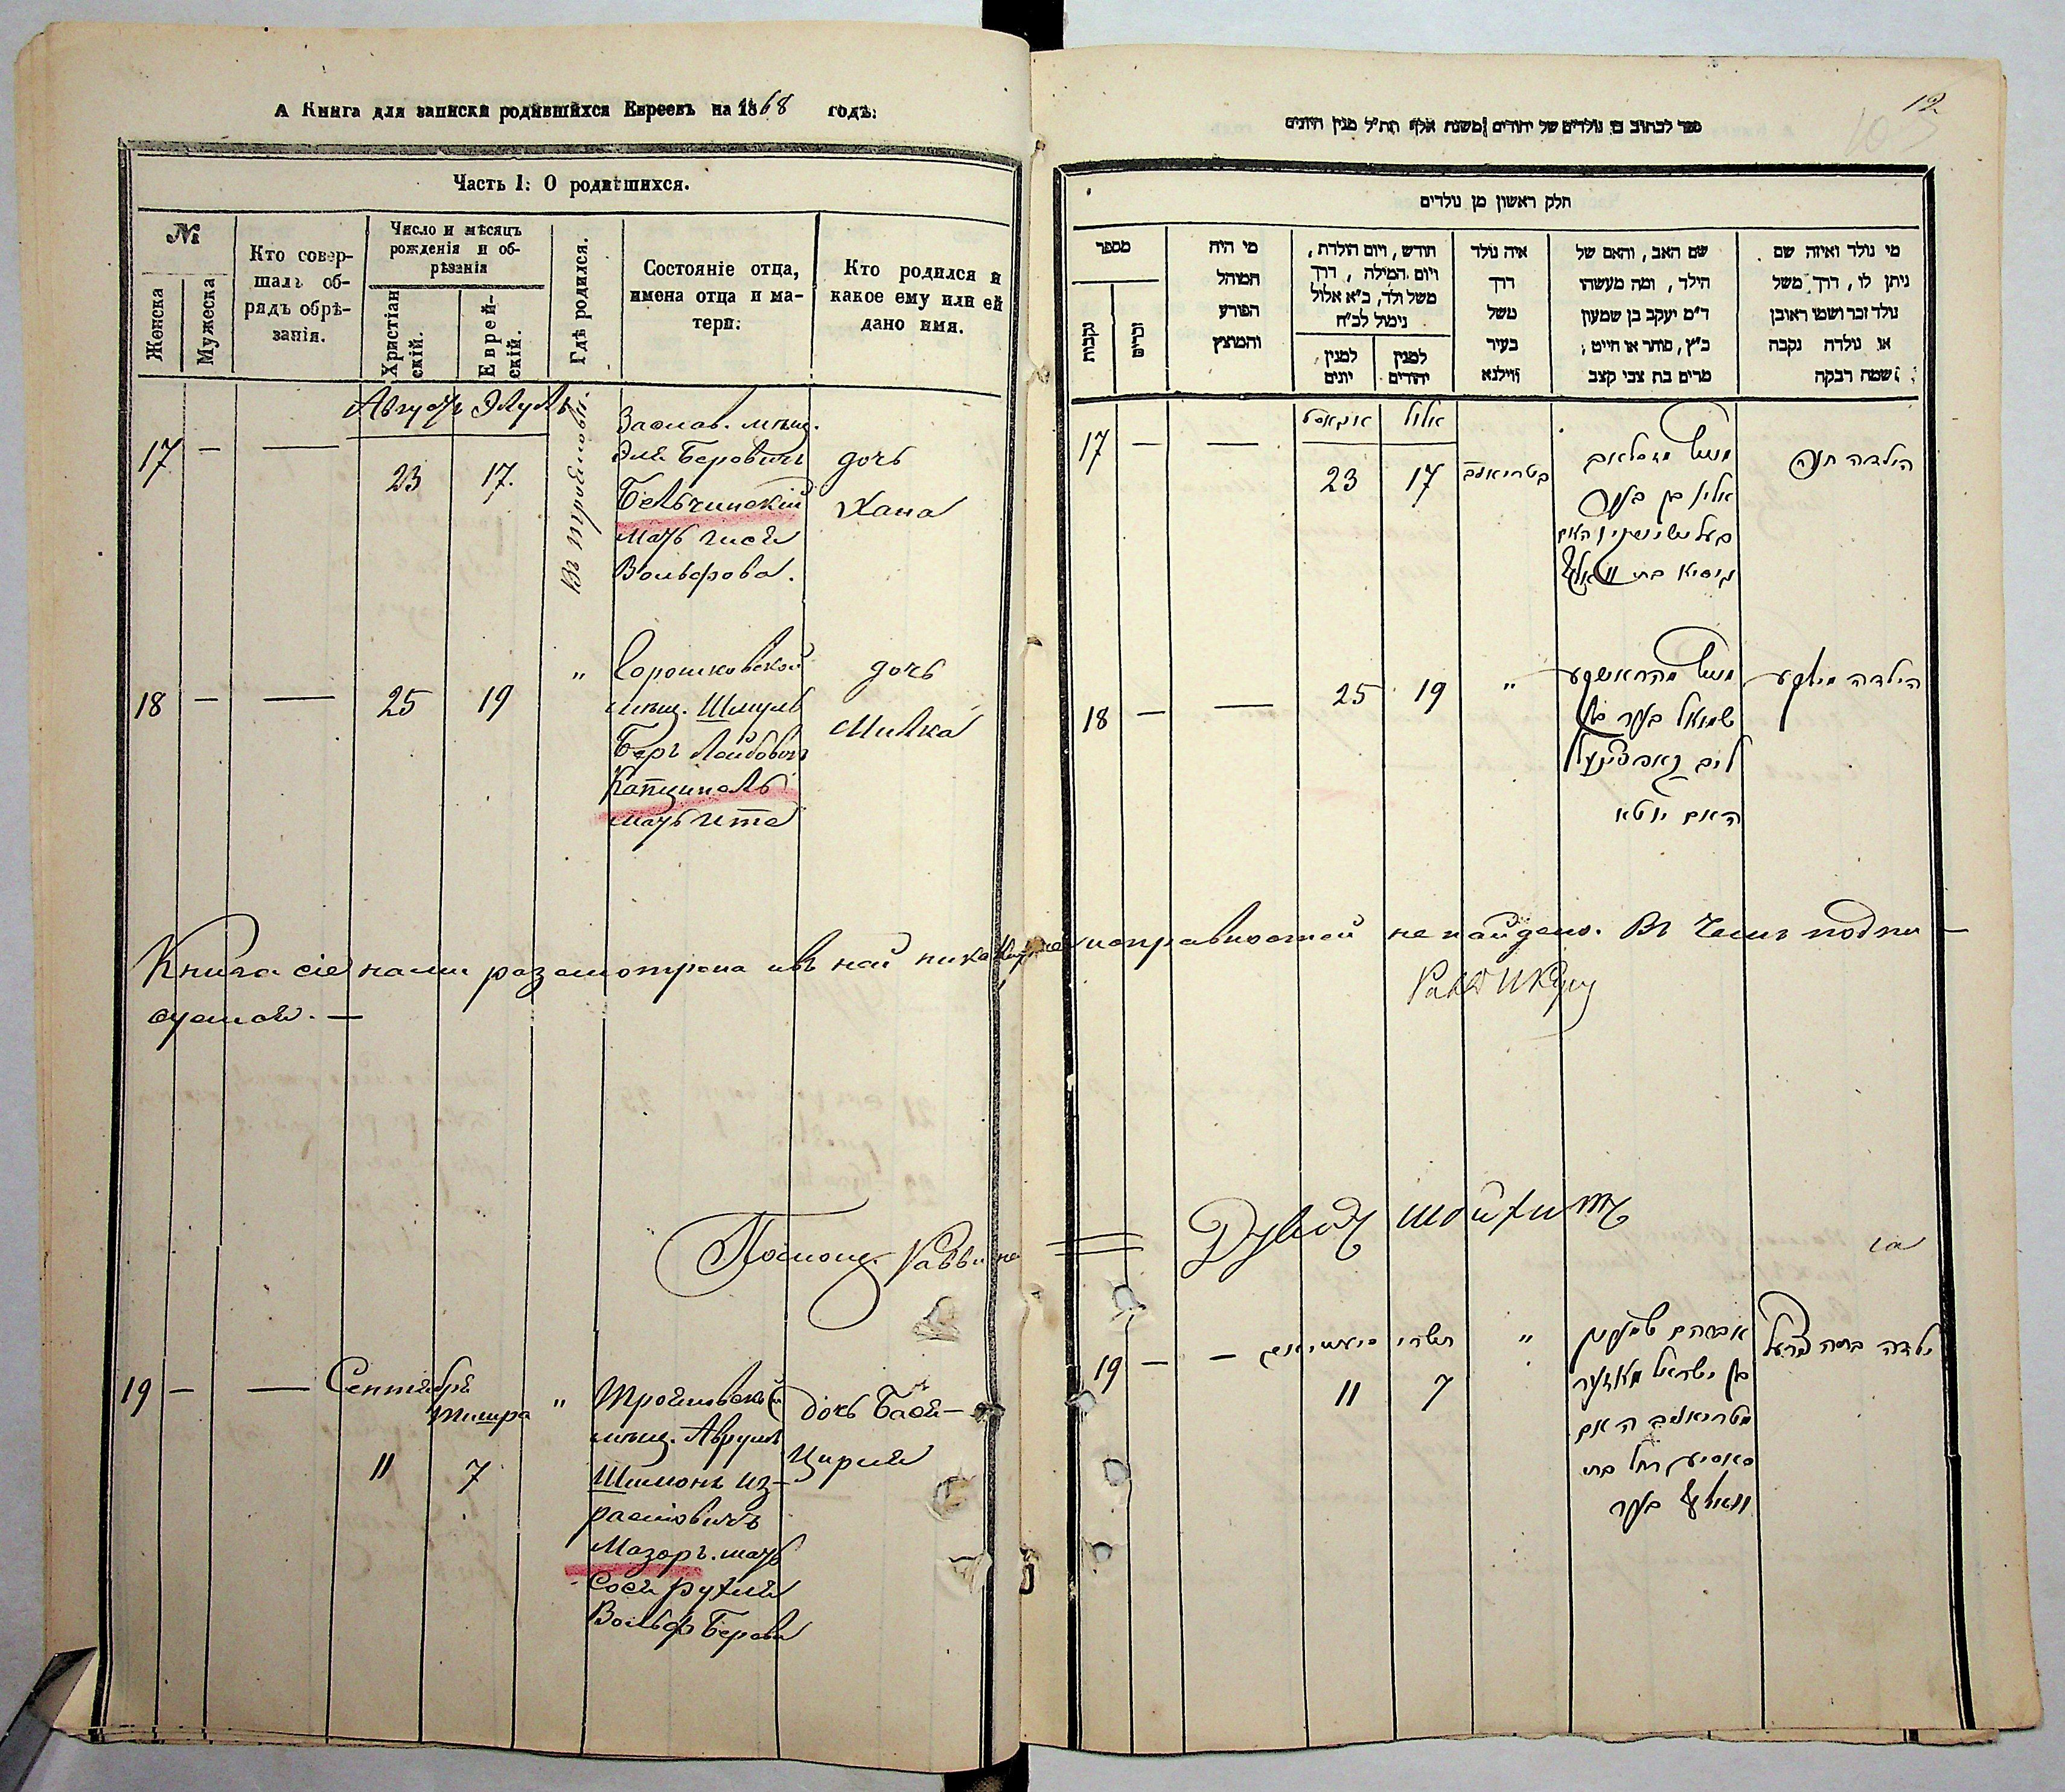 А Книга для записки родившихся Евреевъ на 1868 годъ:
Часть I: О родившихся.
№
Женска
Мужеска
Кто совер-
шалъ об-
рядъ обрѣ-
занія.
Число и мѣсяцъ
рожденія и об-
рѣзанія
Христіан
скій.
Еврей-
скій.
Гдѣ родился.
Состояніе отца,
имена отца и ма-
тери:
Кто родился и
какое ему или ей
дано имя.
Августъ Элулъ
17 — — 23 17.
Заслав. мѣщ.
Эля Беровичъ
Бельчинскій
мать Гися
Вольфова.
дочь
Хана
18 — — 25 19 "
мѣщ. Шмуль
Беръ Лейбовичъ
Капциноль
мать Ита
дочь
Милка
Книга сія нами разсмотрена и въ ней никакихъ неисправностей не найдено. Въ чемъ подпи-
суемся. —
Помощ. Раввина
19 — — Сентябрь
Тишра
11 7 "
Трояновскій
мѣщ. Аврумъ
Шимонъ Из-
раелiовичъ
Мазоръ. мать
Сося Рухля
Вольф Берова
дочь Бася-
Цирля
12
ספר לכתוב בו נולדים של יהודים משנת אלף תת״ל מנין היונים
חלק ראשון מן נולדים
מספר
נקבות
זכרים
מי היה
המוהל
הפורע
והמוצץ
חודש, ויום הולדת,
ויום המילה, דרך
משל ולד, כ״א אלול
נימול לכ״ח
למנין
יונים
למנין
יהודים
איה נולד
דרך
משל
בעיר
ווילנא
שם האב, והאם של
הילד, ומה מעשהו
ד״מ יעקב בן שמעון
כ״ץ, סוחר או חייט,
מרים בת צבי קצב
מי נולד ואיזה שם
ניתן לו, דרך משל
נולד זכר ושמו ראובן
או נולדה נקבה
ושמה רבקה
אויגוסט אלול
17 — — 23 17
הילדה חנה
18 — — 25 19 "
שמואל בער בן
האם יוטא
הילדה מילקע
19 — — תשרי "
11 7
אברהם שמעון
בן ישראל מאזער
האם
רחל בת
וואלף בער